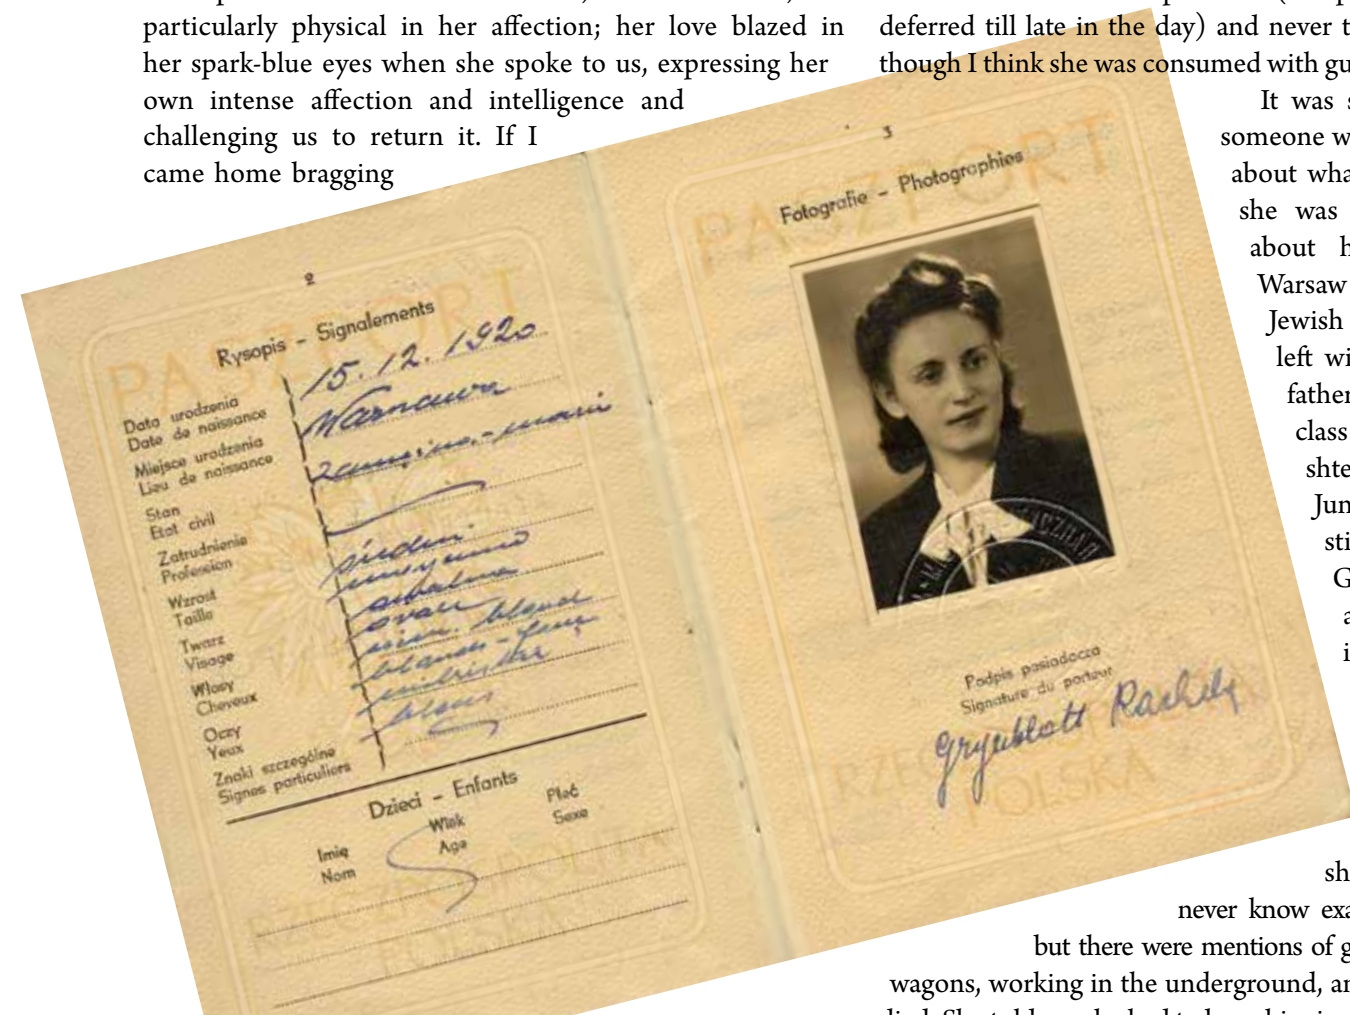 particularly physical in her affection; her love blazed in
her spark-blue eyes when she spoke to us, expressing her
own intense affection and intelligence and
challenging us to return it. If I
came home bragging
deferred till late in the day) and never t
though I think she was consumed with gu
It was s
someone w
about wha
she was
about h
Warsaw
Jewish
left wi
father
class
shte
Jun
sti
G
a
i
sh
never know exa
but there were mentions of g
wagons, working in the underground, an
2
PASZPORT
Rysopis - Signalements
Data urodzenia
Date de naissance
15.12.1920
Miejsce urodzenia
Lieu de naissance
Warszawa
Stan
Etat civil
Zatrudnienie
Profession
Wzrost
Taille
średni
Twarz
Visage
owalna
ovale
Włosy
Cheveux
blond
Oczy
Yeux
niebieskie
bleus
Znaki szczególne
Signes particuliers
Dzieci - Enfants
Imię
Nom
Wiek
Age
Płeć
Sexe
RZECZPOSPOLITA
POLSKA
3
PASZPORT
Fotografie - Photographies
Podpis posiadacza
Signature du porteur
Grynblatt Rachela
POLSKA